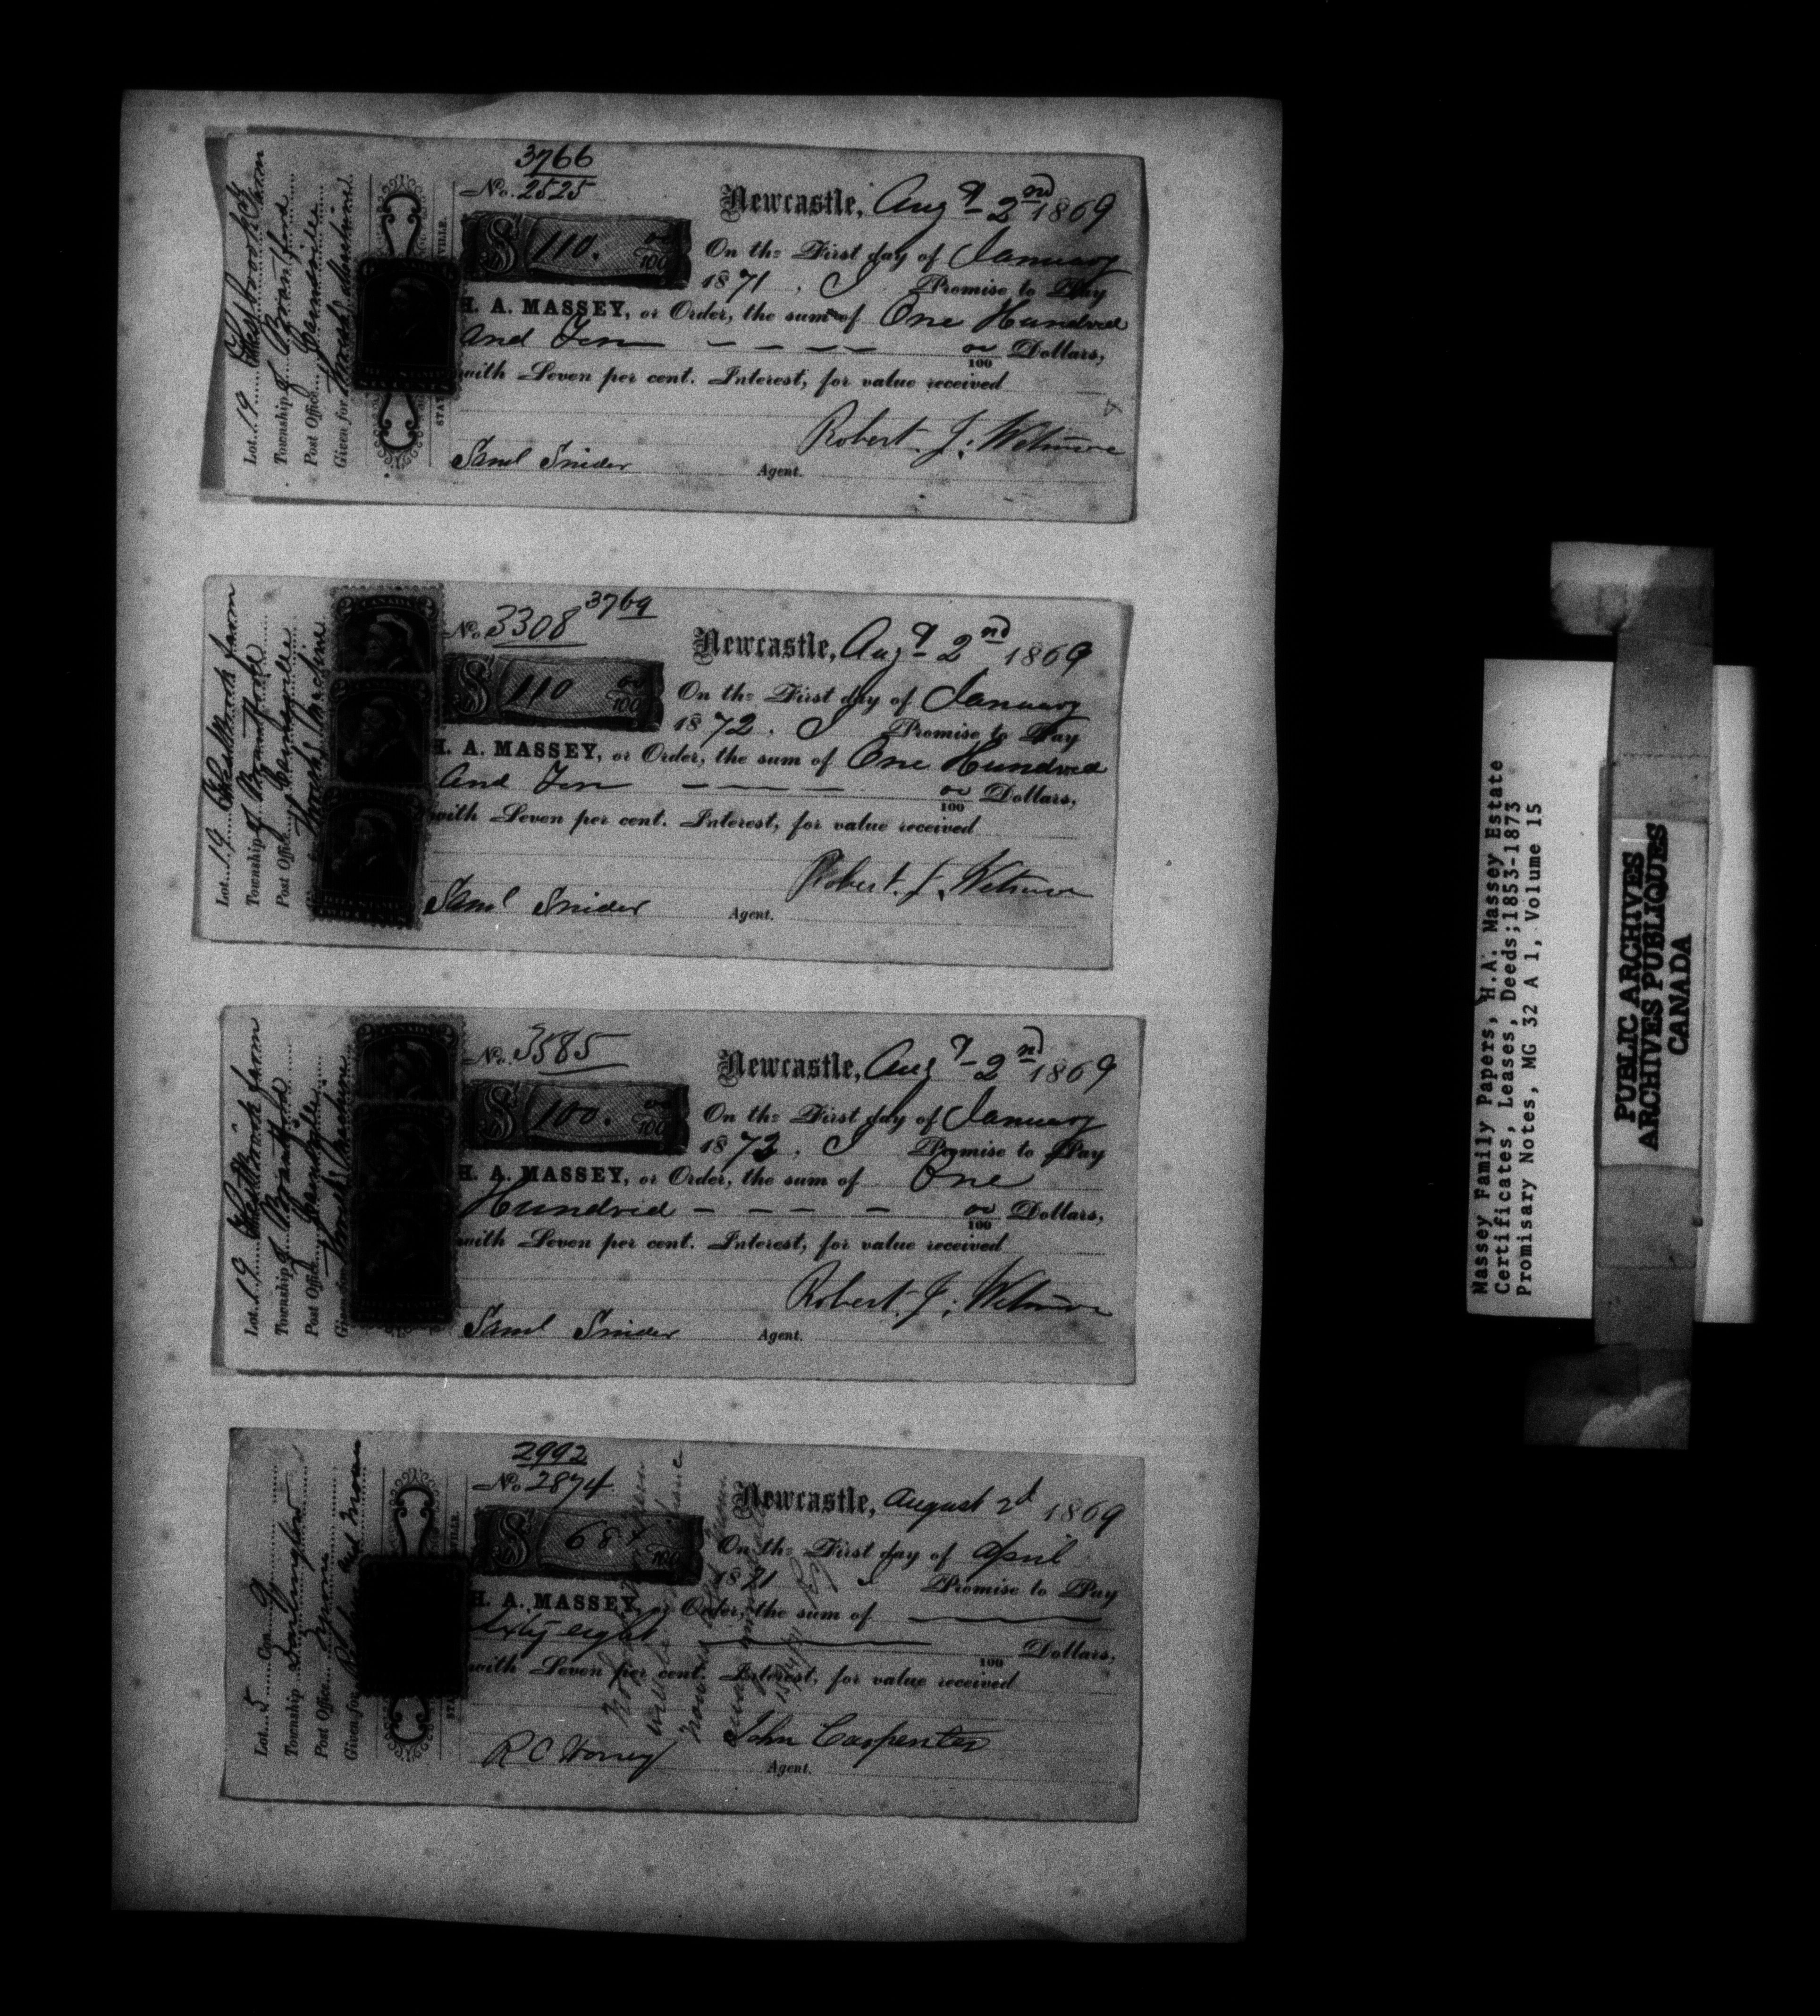 3766
No. 2525
Newcastle, Augt 2nd 1869
$ 110. 00/100
On the First day of January
1871, I Promise to Pay
H. A. MASSEY, or Order, the sum of One Hundred
and Ten — — — — 00/100 Dollars,
with Seven per cent. Interest, for value received
Robert J. Wetmore
Saml Snider Agent.
Lot 19
Township of Brantford
Post Office Cainsville
Given for Thresh Machine
3769
No. 3308
Newcastle, Augt 2nd 1869
$ 110 00/100
On the First day of January
1872, I Promise to Pay
H. A. MASSEY, or Order, the sum of One Hundred
and Ten — — — — 00/100 Dollars,
with Seven per cent. Interest, for value received
Robert J. Wetmore
Saml Snider Agent.
Lot 19 farm
Township of Brantford
Post Office Cainsville
Thresh Machine
CANADA
No. 3585
Newcastle, Augt 2nd 1869
$ 100. 00/100
On the First day of January
1873, I Promise to Pay
H. A. MASSEY, or Order, the sum of One
Hundred — — — — 00/100 Dollars,
with Seven per cent. Interest, for value received
Robert J. Wetmore
Saml Snider Agent.
Lot 19 farm
Township of Brantford
Post Office Cainsville
Thresh Machine
2992
No. 2874
Newcastle, August 2d 1869
$ 68 /100
On the First day of April
1871 Promise to Pay
H. A. MASSEY, or Order, the sum of
Sixty eight /100 Dollars,
with Seven per cent. Interest, for value received
John Carpenter
R C Agent.
Lot 5 Con 9
Township Darlington
Post Office Tyrone
Given for
Massey Family Papers, H.A. Massey Estate
Certificates, Leases, Deeds;1853-1873
Promisary Notes, MG 32 A 1, Volume 15
PUBLIC ARCHIVES
ARCHIVES PUBLIQUES
CANADA